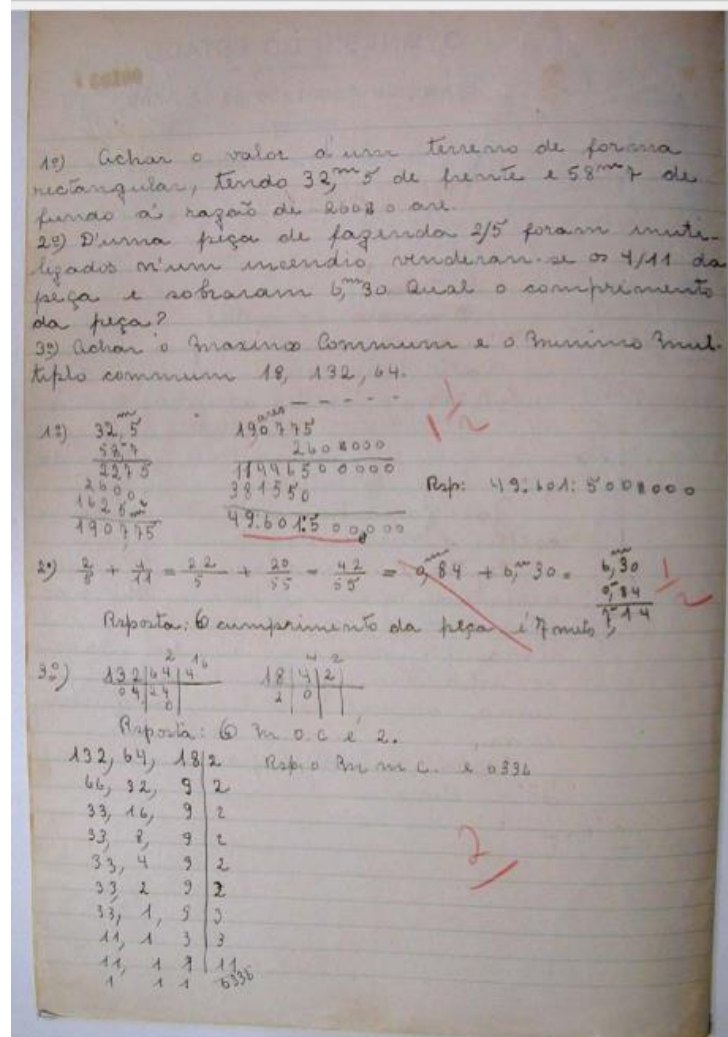 1º) Achar o valor d'um terreno de forma
rectangular, tendo 32,m5 de frente e 58m7 de
fundo á razaõ de 260$0 are.
2º) D'uma peça de fazenda 2/5 foram inuti-
lizados n'um incendio, venderam-se os 4/11 da
peça e sobraram 6,m30. Qual o comprimento
da peça?
3º) Achar o Maximo Commum e o Minimo Mul-
tiplo commum 18, 132, 64.
- - - - -
1º) 32,m5 19,ares0775 1 1/2
58,7 260$000
2275 11446500000
2600 381550 Rsp: 49:601:500$000
1625 m²
190775 49:601:500,000
2º) 2/5 + 4/11 = 22/5 + 20/55 = 42/55 = 0,m84 + 6,m30 = 6,m30 1/2
0,84
7,14
Resposta: O cumprimento da peça é 7 mets
3º) 132 64 4 2 16 18 4 2 4 2
04 24 2 0
0
Resposta: O m.o.c é 2.
132, 64, 18 2 Rsp: o m m c. é 6336
66, 32, 9 2
33, 16, 9 2
33, 8, 9 2
33, 4 9 2
33 2 9 2
33, 1, 9 3
11, 1 3 3
11, 1 1 11
1 1 1 6336